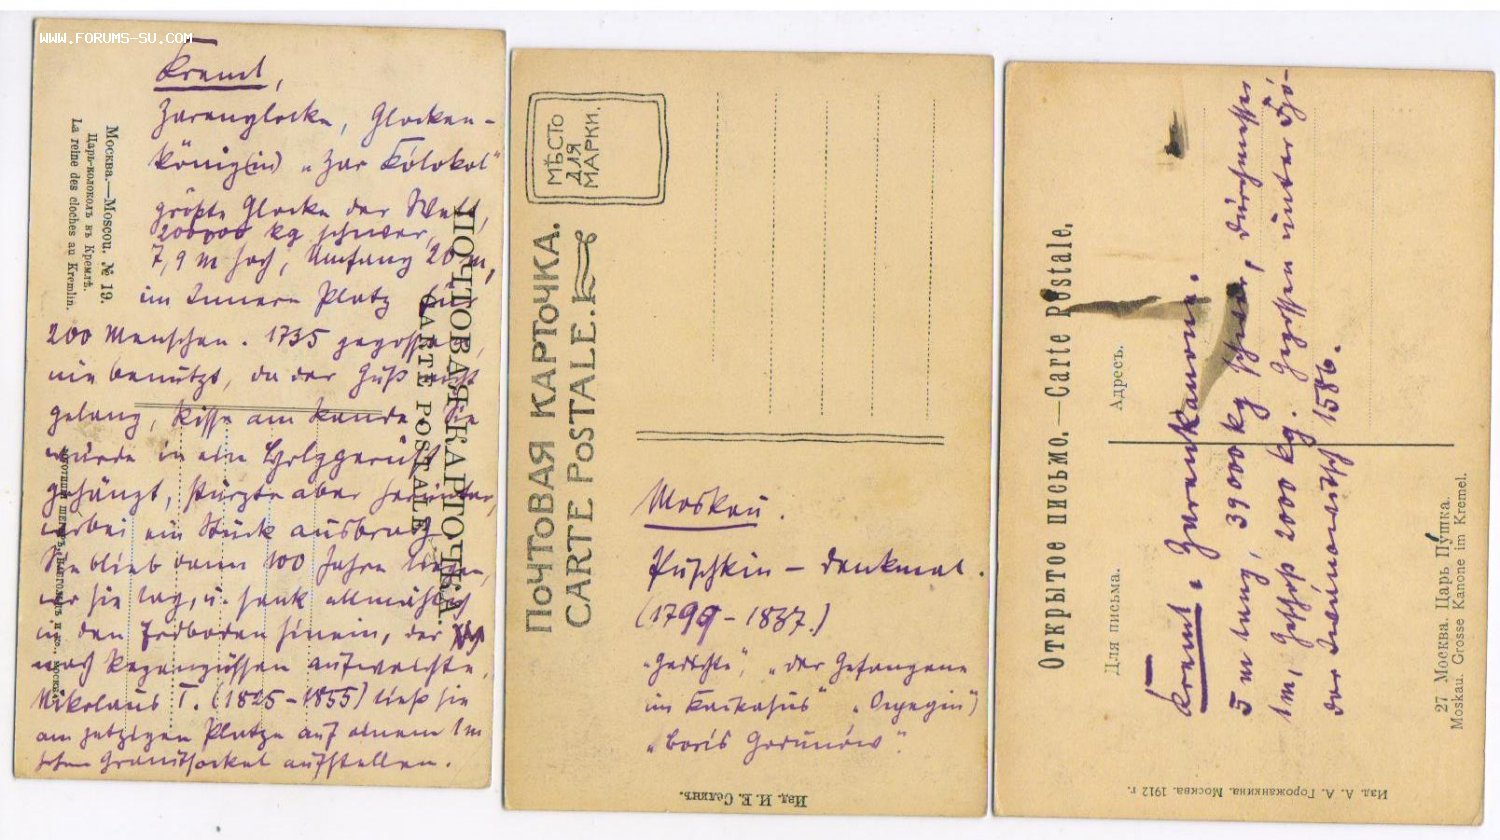 WWW.FORUMS-SU.COM
Kreml,
Zarenglocke, Glocken-
könig(in) „Zar Kólokol"
größte Glocke der Welt,
200000 kg schwer,
7,9 m hoch, Umfang 20 m,
im Innern Platz für
200 Menschen. 1735 gegossen,
nie benützt, da der Guß nicht
gelang, Risse am Rande. Sie
wurde in ein Holzgerüst
gehängt, stürzte aber herunter,
wobei ein Stück ausbrach.
Sie blieb dann 100 Jahre liegen,
wo sie lag, u. sank allmählich
in den Erdboden hinein, der sich
nach Regengüssen aufweichte.
Nikolaus I. (1825-1855) ließ sie
am jetzigen Platze auf einem 1 m
hohen Granitsockel aufstellen.
Москва.—Moscou. № 19.
Царь-колоколъ въ Кремлѣ.
La reine des cloches au Kremlin.
ПОЧТОВАЯ КАРТОЧКА.
CARTE POSTALE
МѢСТО
ДЛЯ
МАРКИ.
ПОЧТОВАЯ КАРТОЧКА.
CARTE POSTALE.
Moskau.
Puschkin – Denkmal.
(1799-1837.)
„Gedichte" „Der Gefangene
im Kaukasus" „Onegin"
„Boris Godunów".
Изд. И. Е. Селинъ.
Открытое письмо.—Carte Postale.
Адресъ.
Для письма.
Kreml. Zarenkanone.
5 m lang, 39000 kg schwer, Durchmesser
1 m, Geschoß 2000 kg. Gegossen unter Fó-
dor Iwánowitsch 1586.
27 Москва. Царь Пушка.
Moskau. Grosse Kanone im Kremel.
Изд. А. А. Горожанкина. Москва. 1912 г.